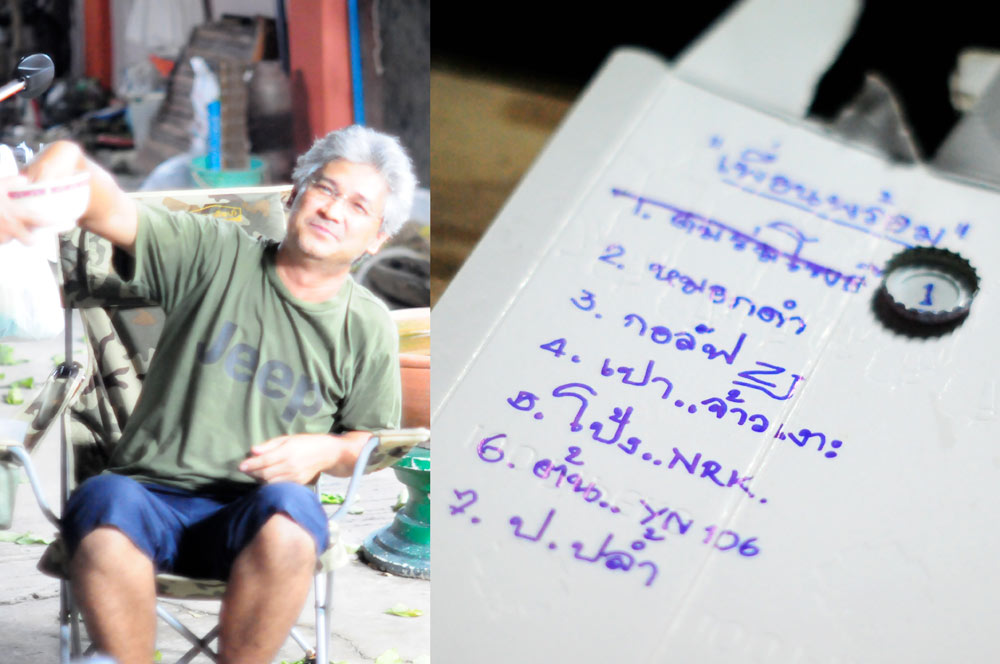 Jeep
"เพื่อนพร้อม"
1.
1
2. หมอกดำ
3. กอล์ฟ ZJ
4. เปา..จ้าวเงาะ
5. โป้ง..NRK..
6. ต้น.. YN 106
7. ป.ปลํ้า